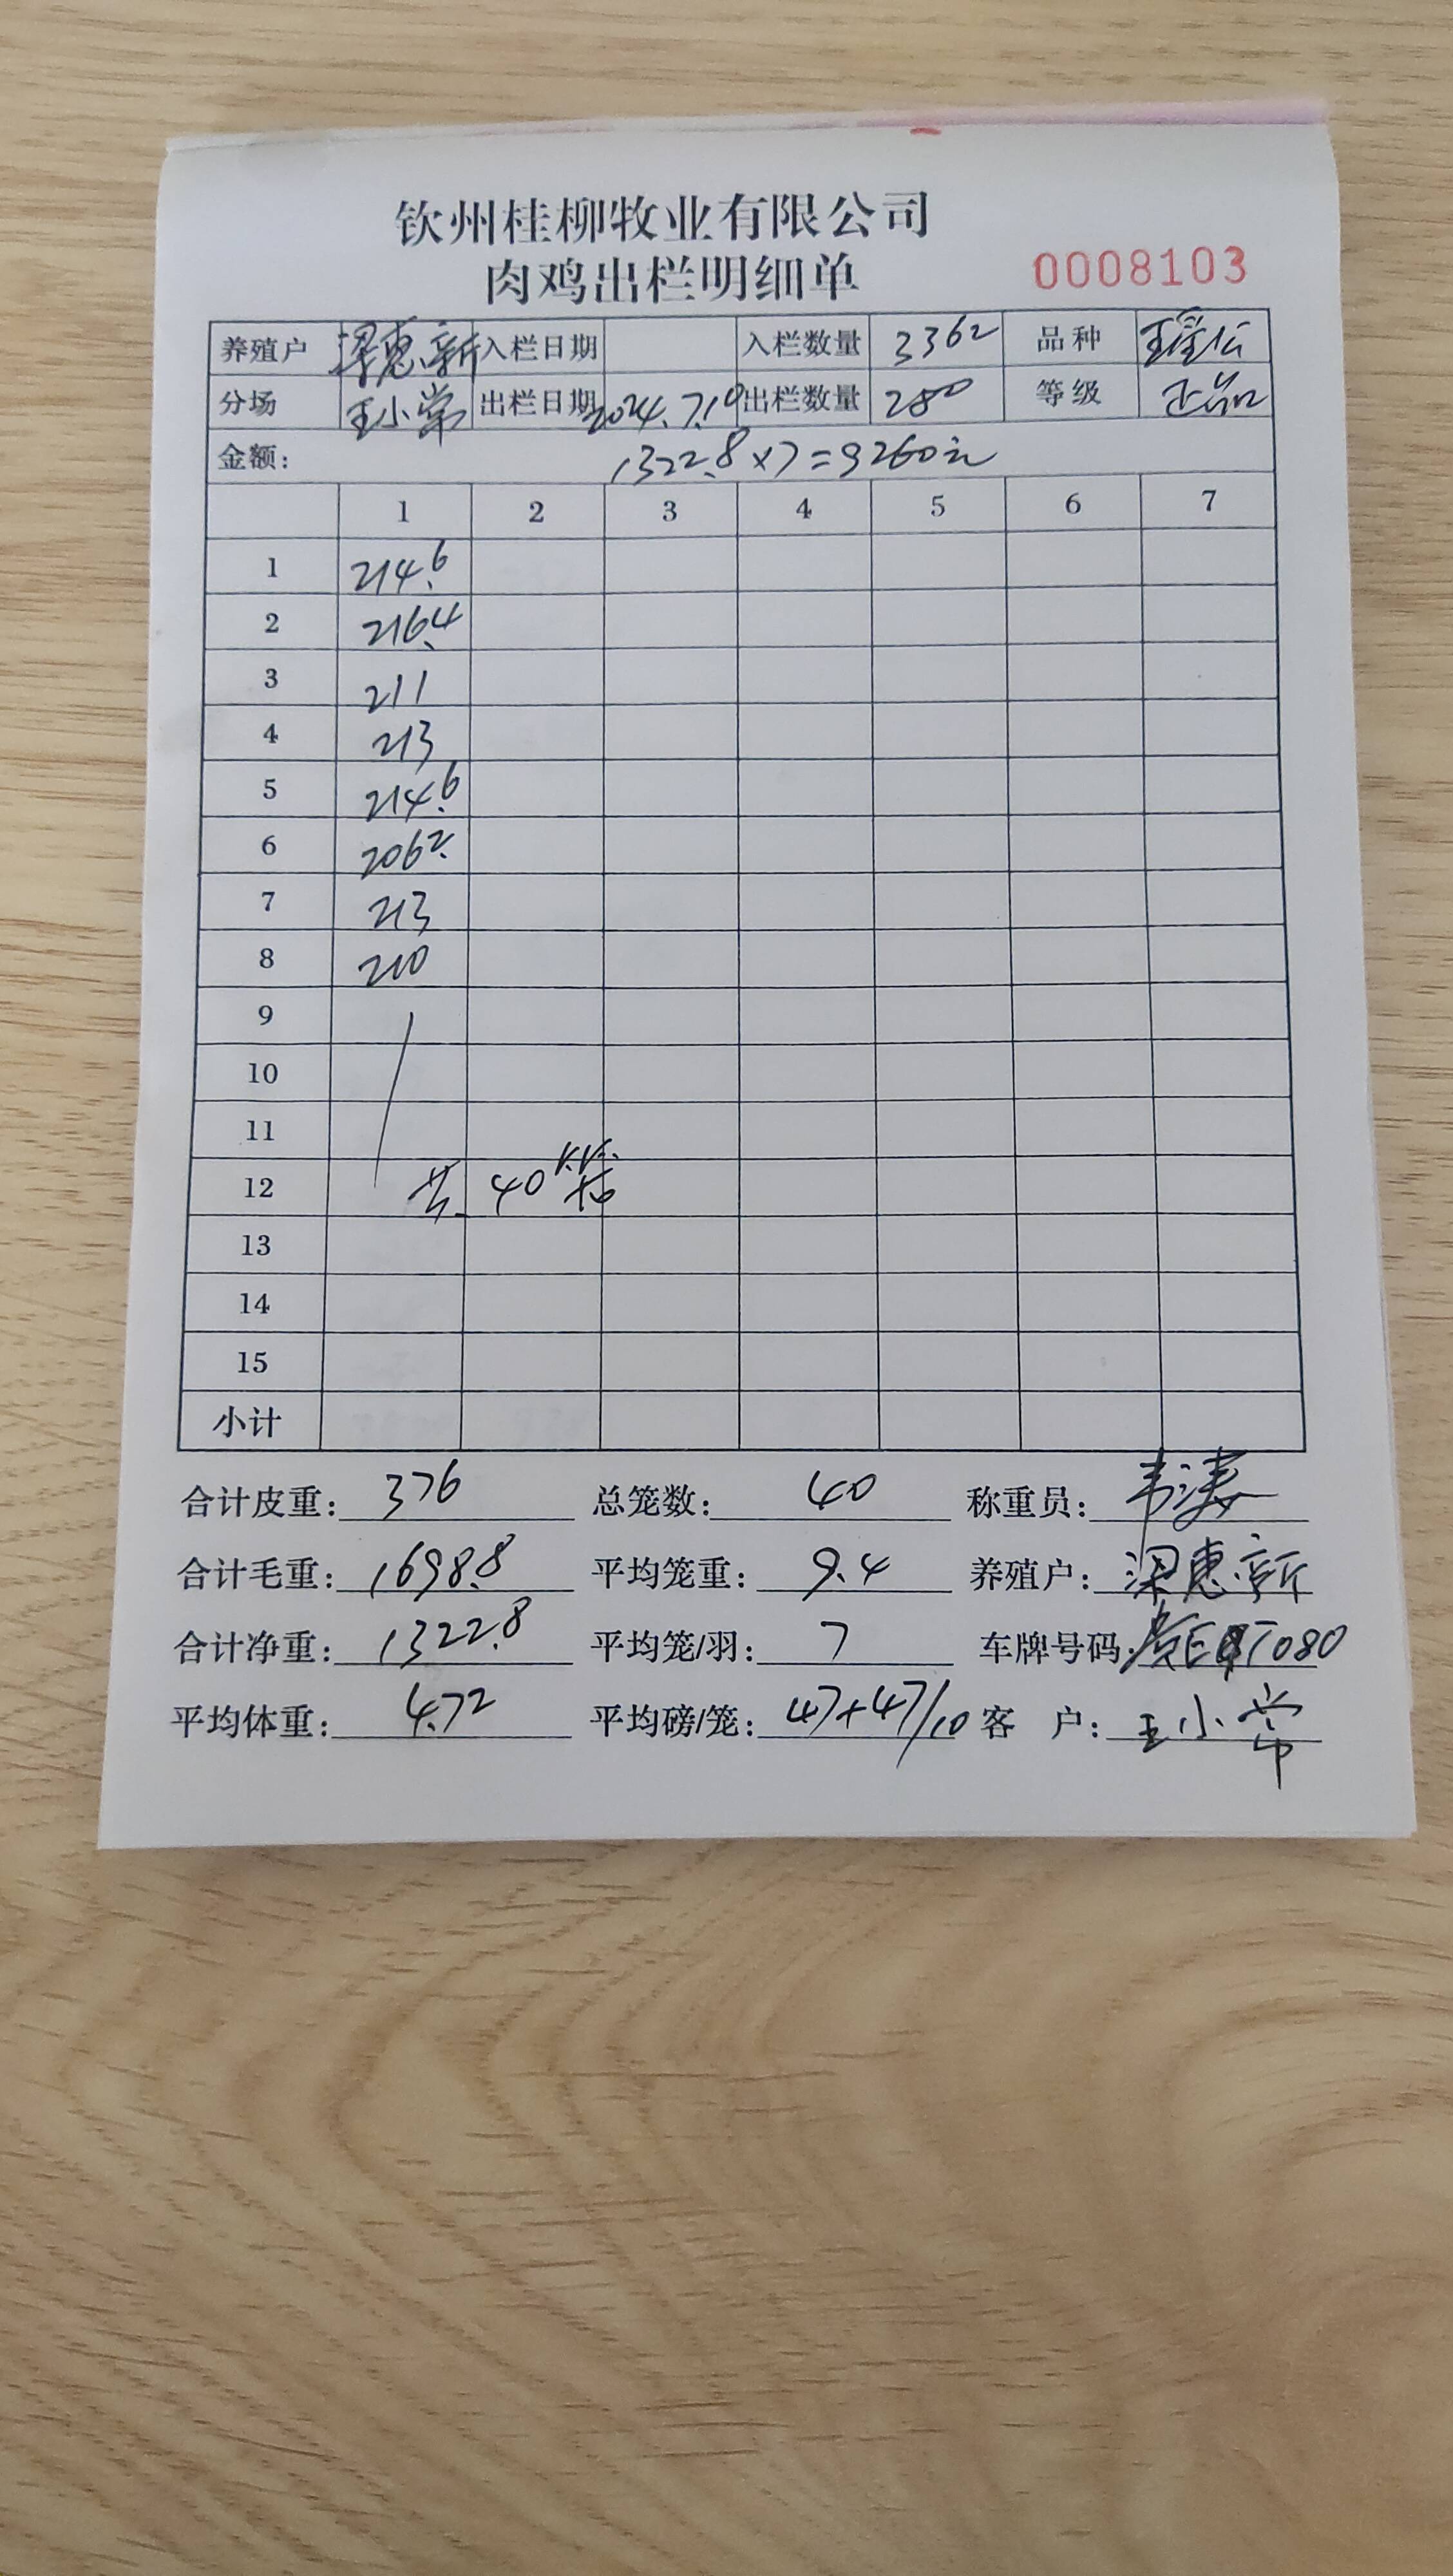 钦州桂柳牧业有限公司
肉鸡出栏明细单 0008103
养殖户 梁惠新 入栏日期 入栏数量 3362 品种
分场 王小常 出栏日期 2024.7.10 出栏数量 280 等级 正品
金额: 1322.8×7=9260元
1 2 3 4 5 6 7
1 214.6
2 216.4
3 211
4 213
5 214.6
6 206.2
7 213
8 210
9
10
11
12 共 40
13
14
15
小计
合计皮重: 376 总笼数: 40 称重员: 韦涛
合计毛重: 1698.8 平均笼重: 9.4 养殖户: 梁惠新
合计净重: 1322.8 平均笼/羽: 7 车牌号码:
平均体重: 4.72 平均磅/笼: 47+47/10 客 户: 王小常